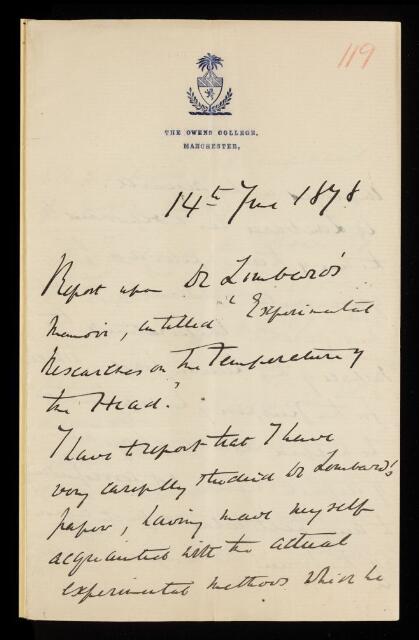 119
THE OWENS COLLEGE,
MANCHESTER,
14th June 1878
Report upon Dr Lombard's
Memoir, entitled "Experimental
Researches on the Temperature of
the Head."
I have to report that I have
very carefully studied Dr Lombard's
paper, having made myself
acquainted with the actual
experimental methods which he